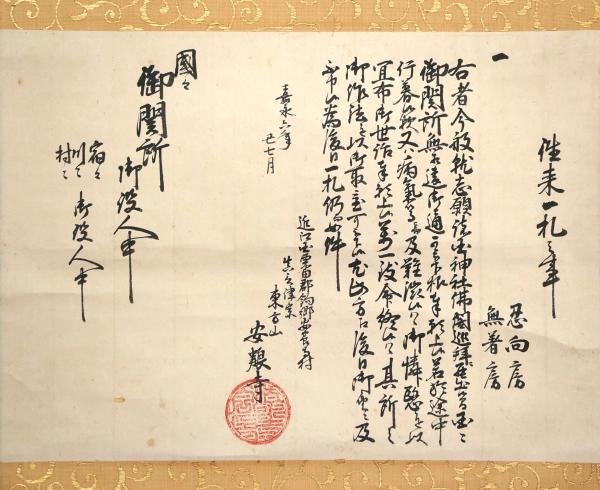 往来一札之事
忍向房
無著房
一
右者今般就志願諸国神社佛閣巡拝罷出候間国々
御関所無相違御通可被下候様奉願上候若於途中
行暮候歟又ハ病氣等ニ而及難渋候ハヽ御憐愍を以
宜布御世話奉願上候万一致命終候ハヽ其所之
御作法を以御取置可被下候尤此方江後日御申
及
不申候為後日一札仍如件
嘉永六年
丑七月
近江国栗田郡鈎郷安養寺村
津宗
東方山
安養寺
國々
御関所
御役人中
宿々
川々
村々
御役人中